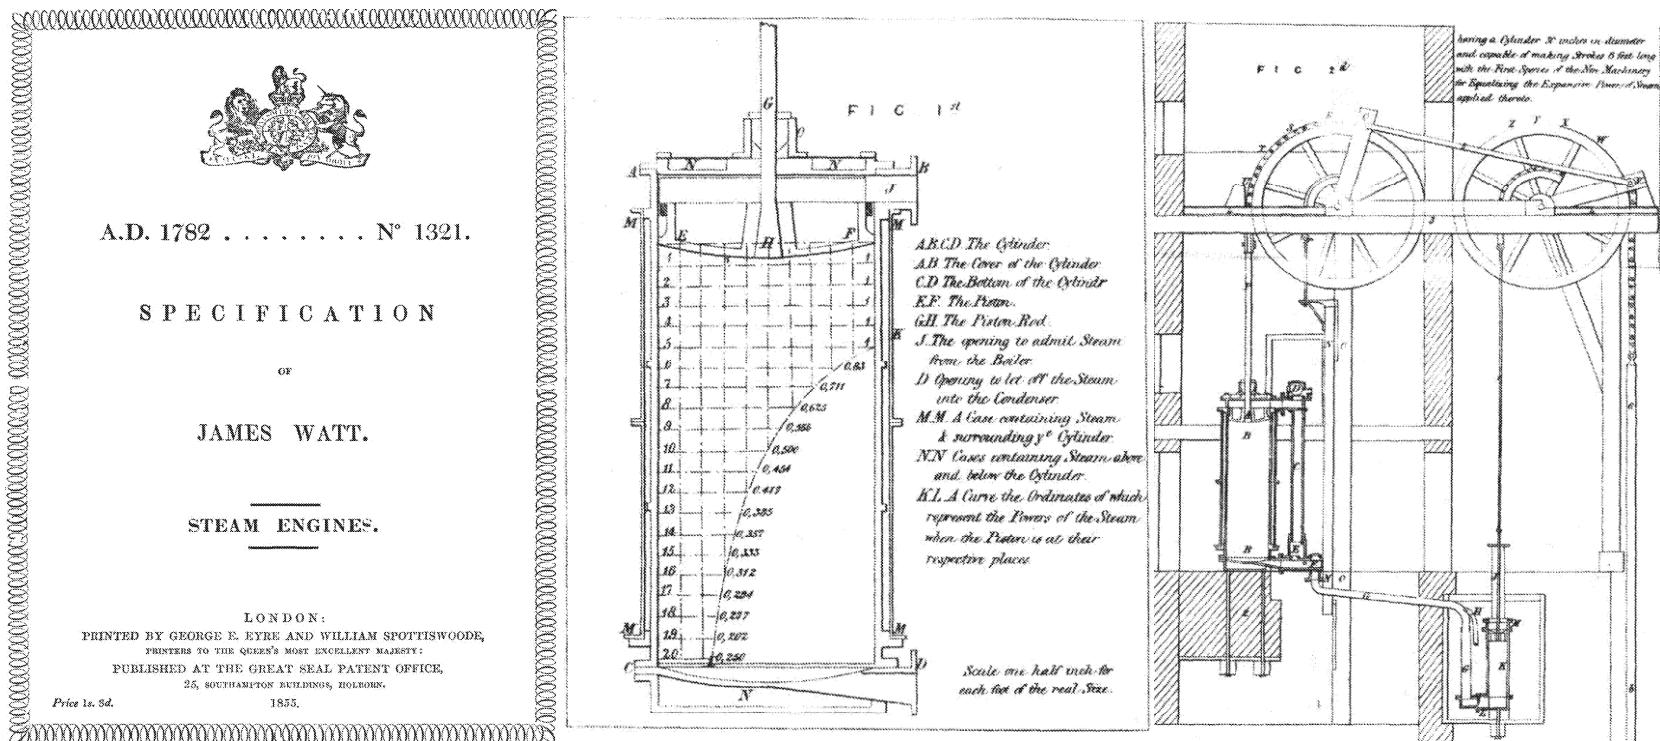 A.D. 1782 . . . . . . . . N° 1321.
SPECIFICATION
OF
JAMES WATT.
STEAM ENGINES.
LONDON:
PRINTED BY GEORGE E. EYRE AND WILLIAM SPOTTISWOODE,
PRINTERS TO THE QUEEN'S MOST EXCELLENT MAJESTY:
PUBLISHED AT THE GREAT SEAL PATENT OFFICE,
25, SOUTHAMPTON BUILDINGS, HOLBORN.
Price 1s. 3d.
1855.
FIG 1st
G
O
N N
A B
J
M M
E H F
1 1
2 1
3 1
4 1
5 1
K
6 0,83
7 0,711
8 0,625
9
10 0,500
11 0,454
12 0,417
13 0,385
14 0,357
15 0,333
16 0,312
17 0,294
18
19
20 0,250
M M
C D
N
A.B.C.D. The Cylinder
A.B. The Cover of the Cylinder
C.D The Bottom of the Cylindr
E.F. The Piston.
G.H. The Piston Rod.
J. The opening to admit Steam
from the Boiler
D Opening to let off the Steam
into the Condenser
M.M. A Case containing Steam
& surrounding ye Cylinder.
N.N Cases containing Steam above
and below the Cylinder.
K.L. A Curve the Ordinates of which
represent the Powers of the Steam
when the Piston is at their
respective places
Scale one half inch for
each foot of the real Size.
FIG 2d
having a Cylinder inches in diameter
and capable of making Strokes 8 feet long
with the First Species of the New Machinery
for Equalizing the Expansive Powers of Steam
applied thereto.
Z Y X
W
B
B
E
G
H
K
G